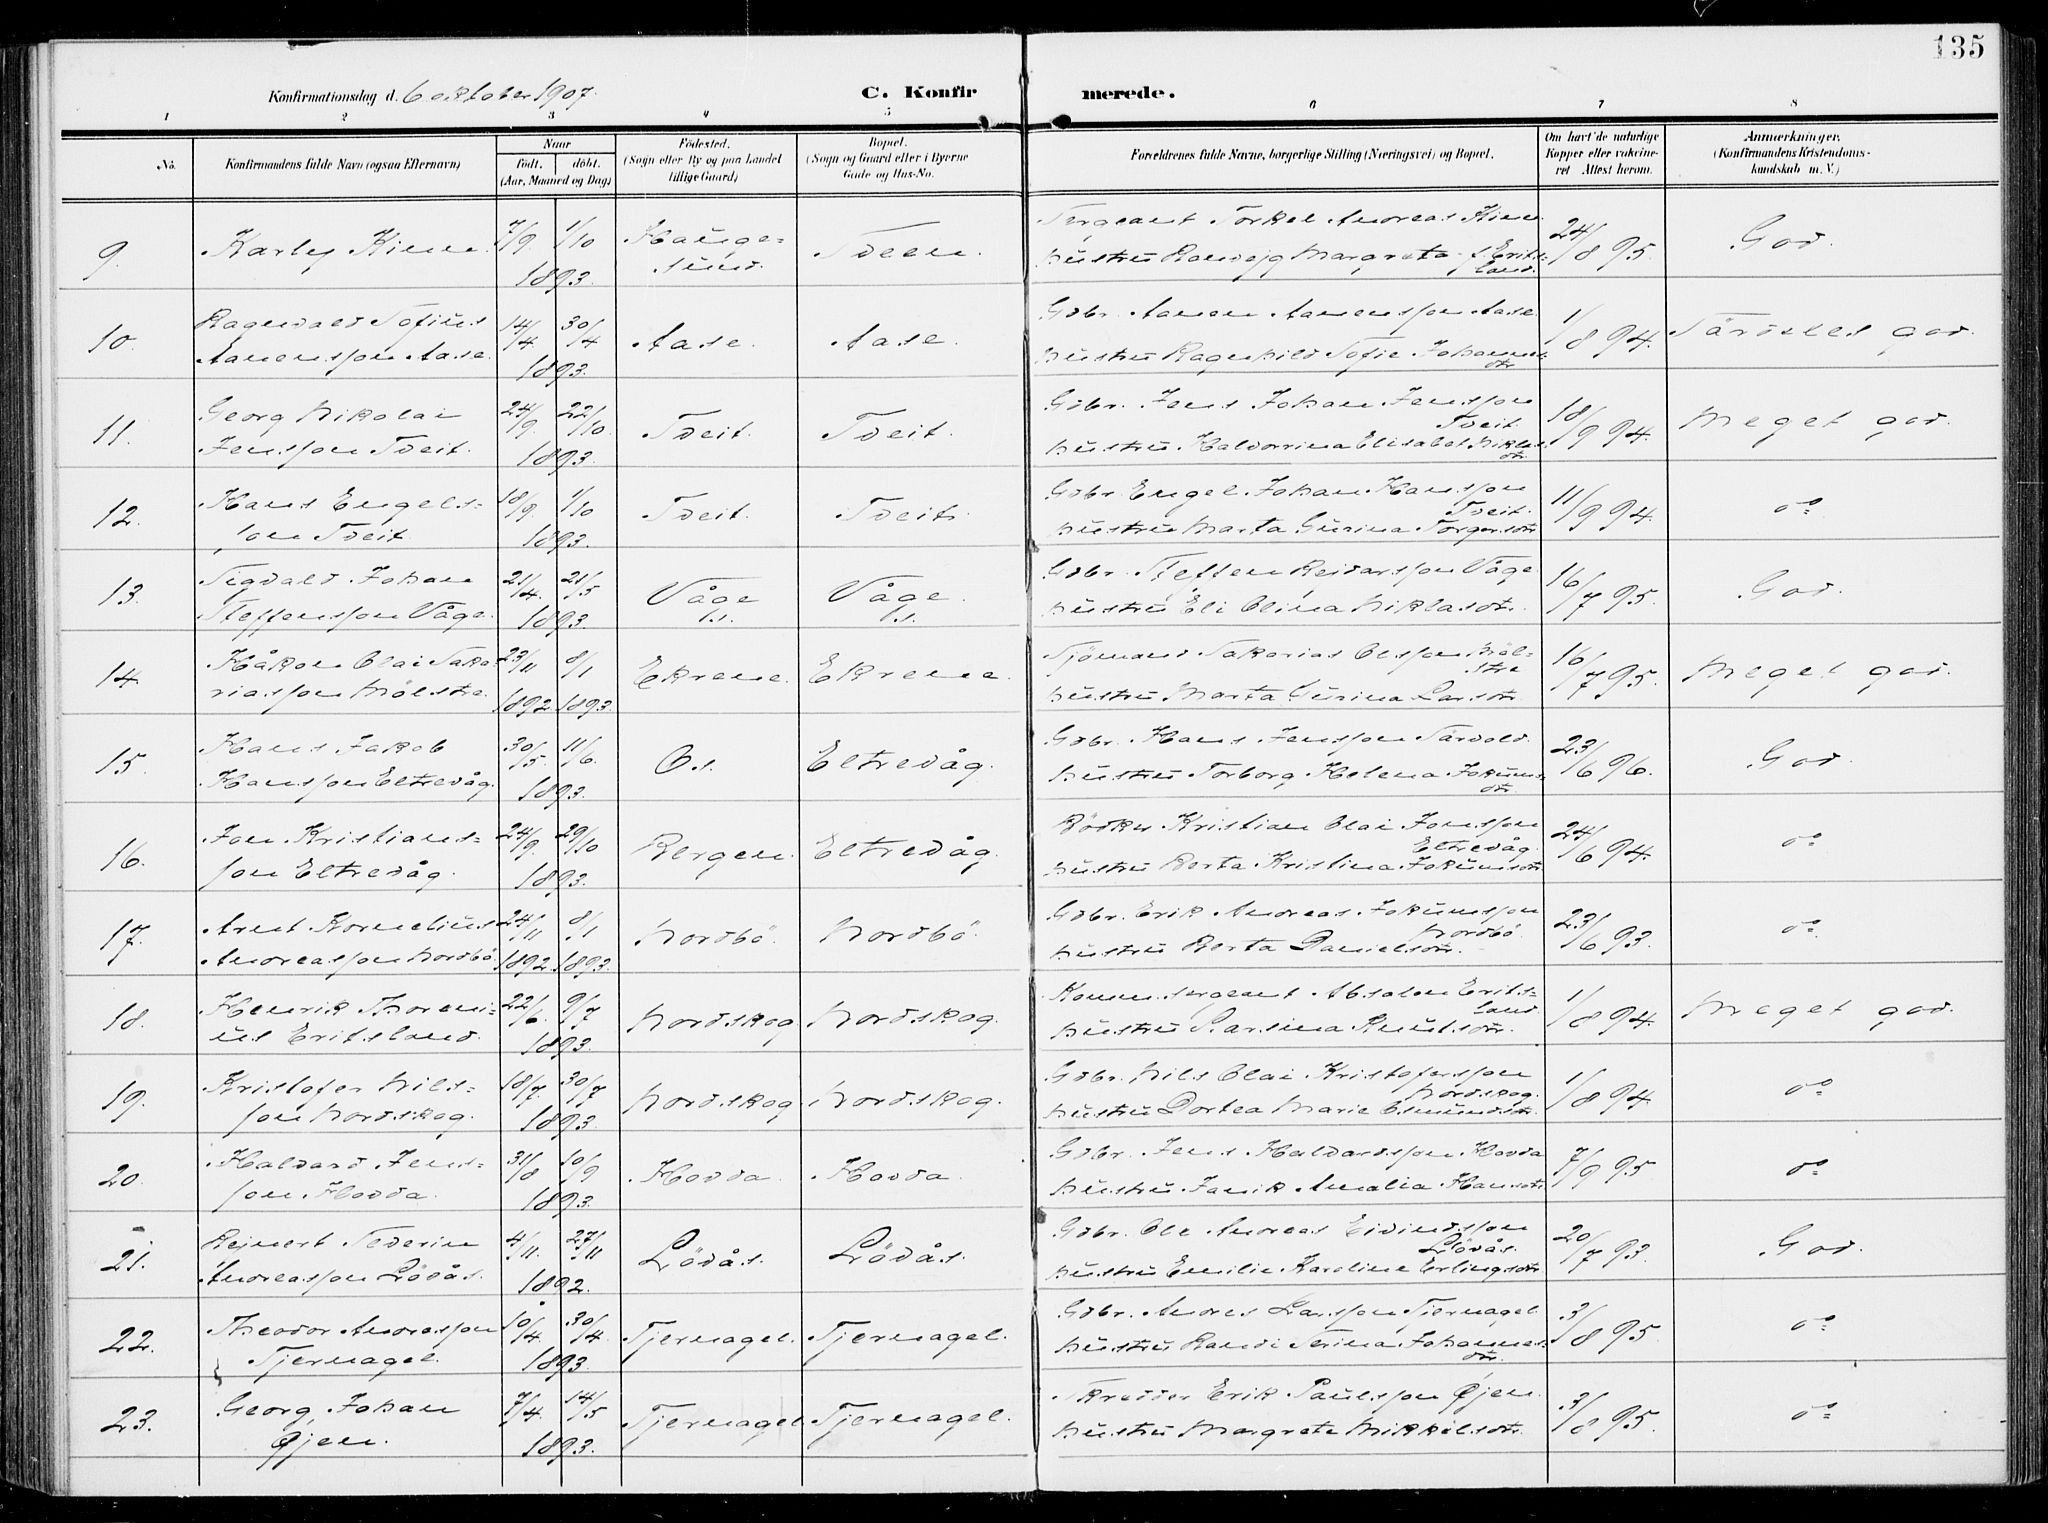 135
Konfirmationsdag d. 6 oktober 1907.
C. Konfirmerede.
1 2 3 4 5 6 7 8
No.
Konfirmandens fulde Navn (ogsaa Efternavn)
Naar
født. døbt.
(Aar, Maaned og Dag)
Fødested.
(Sogn eller By og paa Landet
tillige Gaard)
Bopæl.
(Sogn og Gaard eller i Byerne
Gade og Hus-No.
Forældrenes fulde Navne, borgerlige Stilling (Næringsvei) og Bopæl.
Om havt de naturlige
Kopper eller vakcine-
ret Attest herom.
Anmærkninger.
(Konfirmandens Kristendoms-
kundskab m. V.)
9. Karley Kinn. 7/9. 1/10 1893. Hauge-
sund. Tveen.
Sergeant Torkel Andreas Kinn
hustru Ranveig Margreta f. Erits-
land. 24/8 95. God.
10. Ragnvald Sofius
Aanenson Aase. 14/4 30/4 1893. Aase. Aase.
Gdbr. Aanen Aanensson Aase
hustru Ragnhild Sofie Johannes-
dtr 1/8 94. Særdeles god.
11. Georg Nikolai
Jensson Tveit. 24/9. 22/10 1893. Tveit. Tveit.
Gdbr. Jens Johan Jensson
Tveit.
hustru Haldorrina Elisabet Niklas
dtr. 18/9 94. Meget god.
12. Hans Engels-
son Tveit. 18/9. 1/10 1893. Tveit. Tveit.
Gdbr. Engel Johan Hansson
Tveit.
hustru Marta Gurina Torgersdtr 11/9 94. do
13. Sigvald Johan
Steffensson Våge. 21/4. 21/5 1893. Våge
l.s. Våge.
l.s.
Gdbr. Steffen Reidarsson Våge
hustru Eli Olina Niklasdtr. 16/7 95. God.
14. Håkon Olai Saka-
riasson Mølstre. 23/11 8/1 1892. 1893. Ekrene. Ekrene.
Sjømand Sakarias Olsson Møl-
stre
hustru Marta Gurina Larsdtr 16/7 95. Meget god.
15. Hans Jakob
Hansson Eltrevåg. 30/5. 11/6. 1893. Os. Eltrevåg.
Gdbr. Hans Jensson Særvold
hustru Torborg Helena Jokums-
dtr. 23/6 96. God.
16. Jon Kristians-
son Eltrevåg. 24/9. 29/10 1893. Bergen. Eltrevåg.
Bødker Kristian Olai Jonsson
Eltrevåg.
hustru Berta Kristina Jokumsdtr 24/6 94. do
17. Arnt Kornelius
Andreasson Nordbø. 24/11 8/1 1892. 1893. Nordbø. Nordbø.
Gdbr. Erik Andreas Jokumsson
Nordbø.
hustru Berta Danielsdtr. 23/6 93. do
18. Henrik Thoreni-
us Eritsland. 22/6. 9/7 1893. Nordskog Nordskog.
Komm.sergeant Absalon Erits-
land
hustru Karsina Knutsdtr. 1/8 94. Meget god.
19. Kristofer Nils-
son Nordskog. 18/7. 30/7 1893. Nordskog Nordskog.
Gdbr. Nils Olai Kristofersson
Nordskog.
hustru Dortea Marie Osmundsdtr. 1/8 94. do
20. Haldard Jens-
son Hovda. 31/8 10/9 1893. Hovda. Hovda.
Gdbr. Jens Haldardsson Hovda
hustru Janik Amalia Hansdtr 7/9 95. do
21. Reinert Severin
Andreasson Løvås. 4/11. 27/11 1892. Løvås. Løvås.
Gdbr. Ole Andreas Eivindsson
Løvås.
hustru Emilie Karoline Erlingsdtr 20/7 93. God.
22. Theodor Andresson
Tjernagel. 10/4 30/4. 1893. Tjernagel. Tjernagel.
Gdbr. Andres Larsson Tjernagel.
hustru Randi Serina Johannes-
dtr. 3/8 95. do
23. Georg Johan
Øjen. 7/4. 14/5 1893. Tjernagel Tjernagel.
Skredder Erik Paulsson Øjen.
hustru Margrete Mikkelsdtr. 3/8 95. do